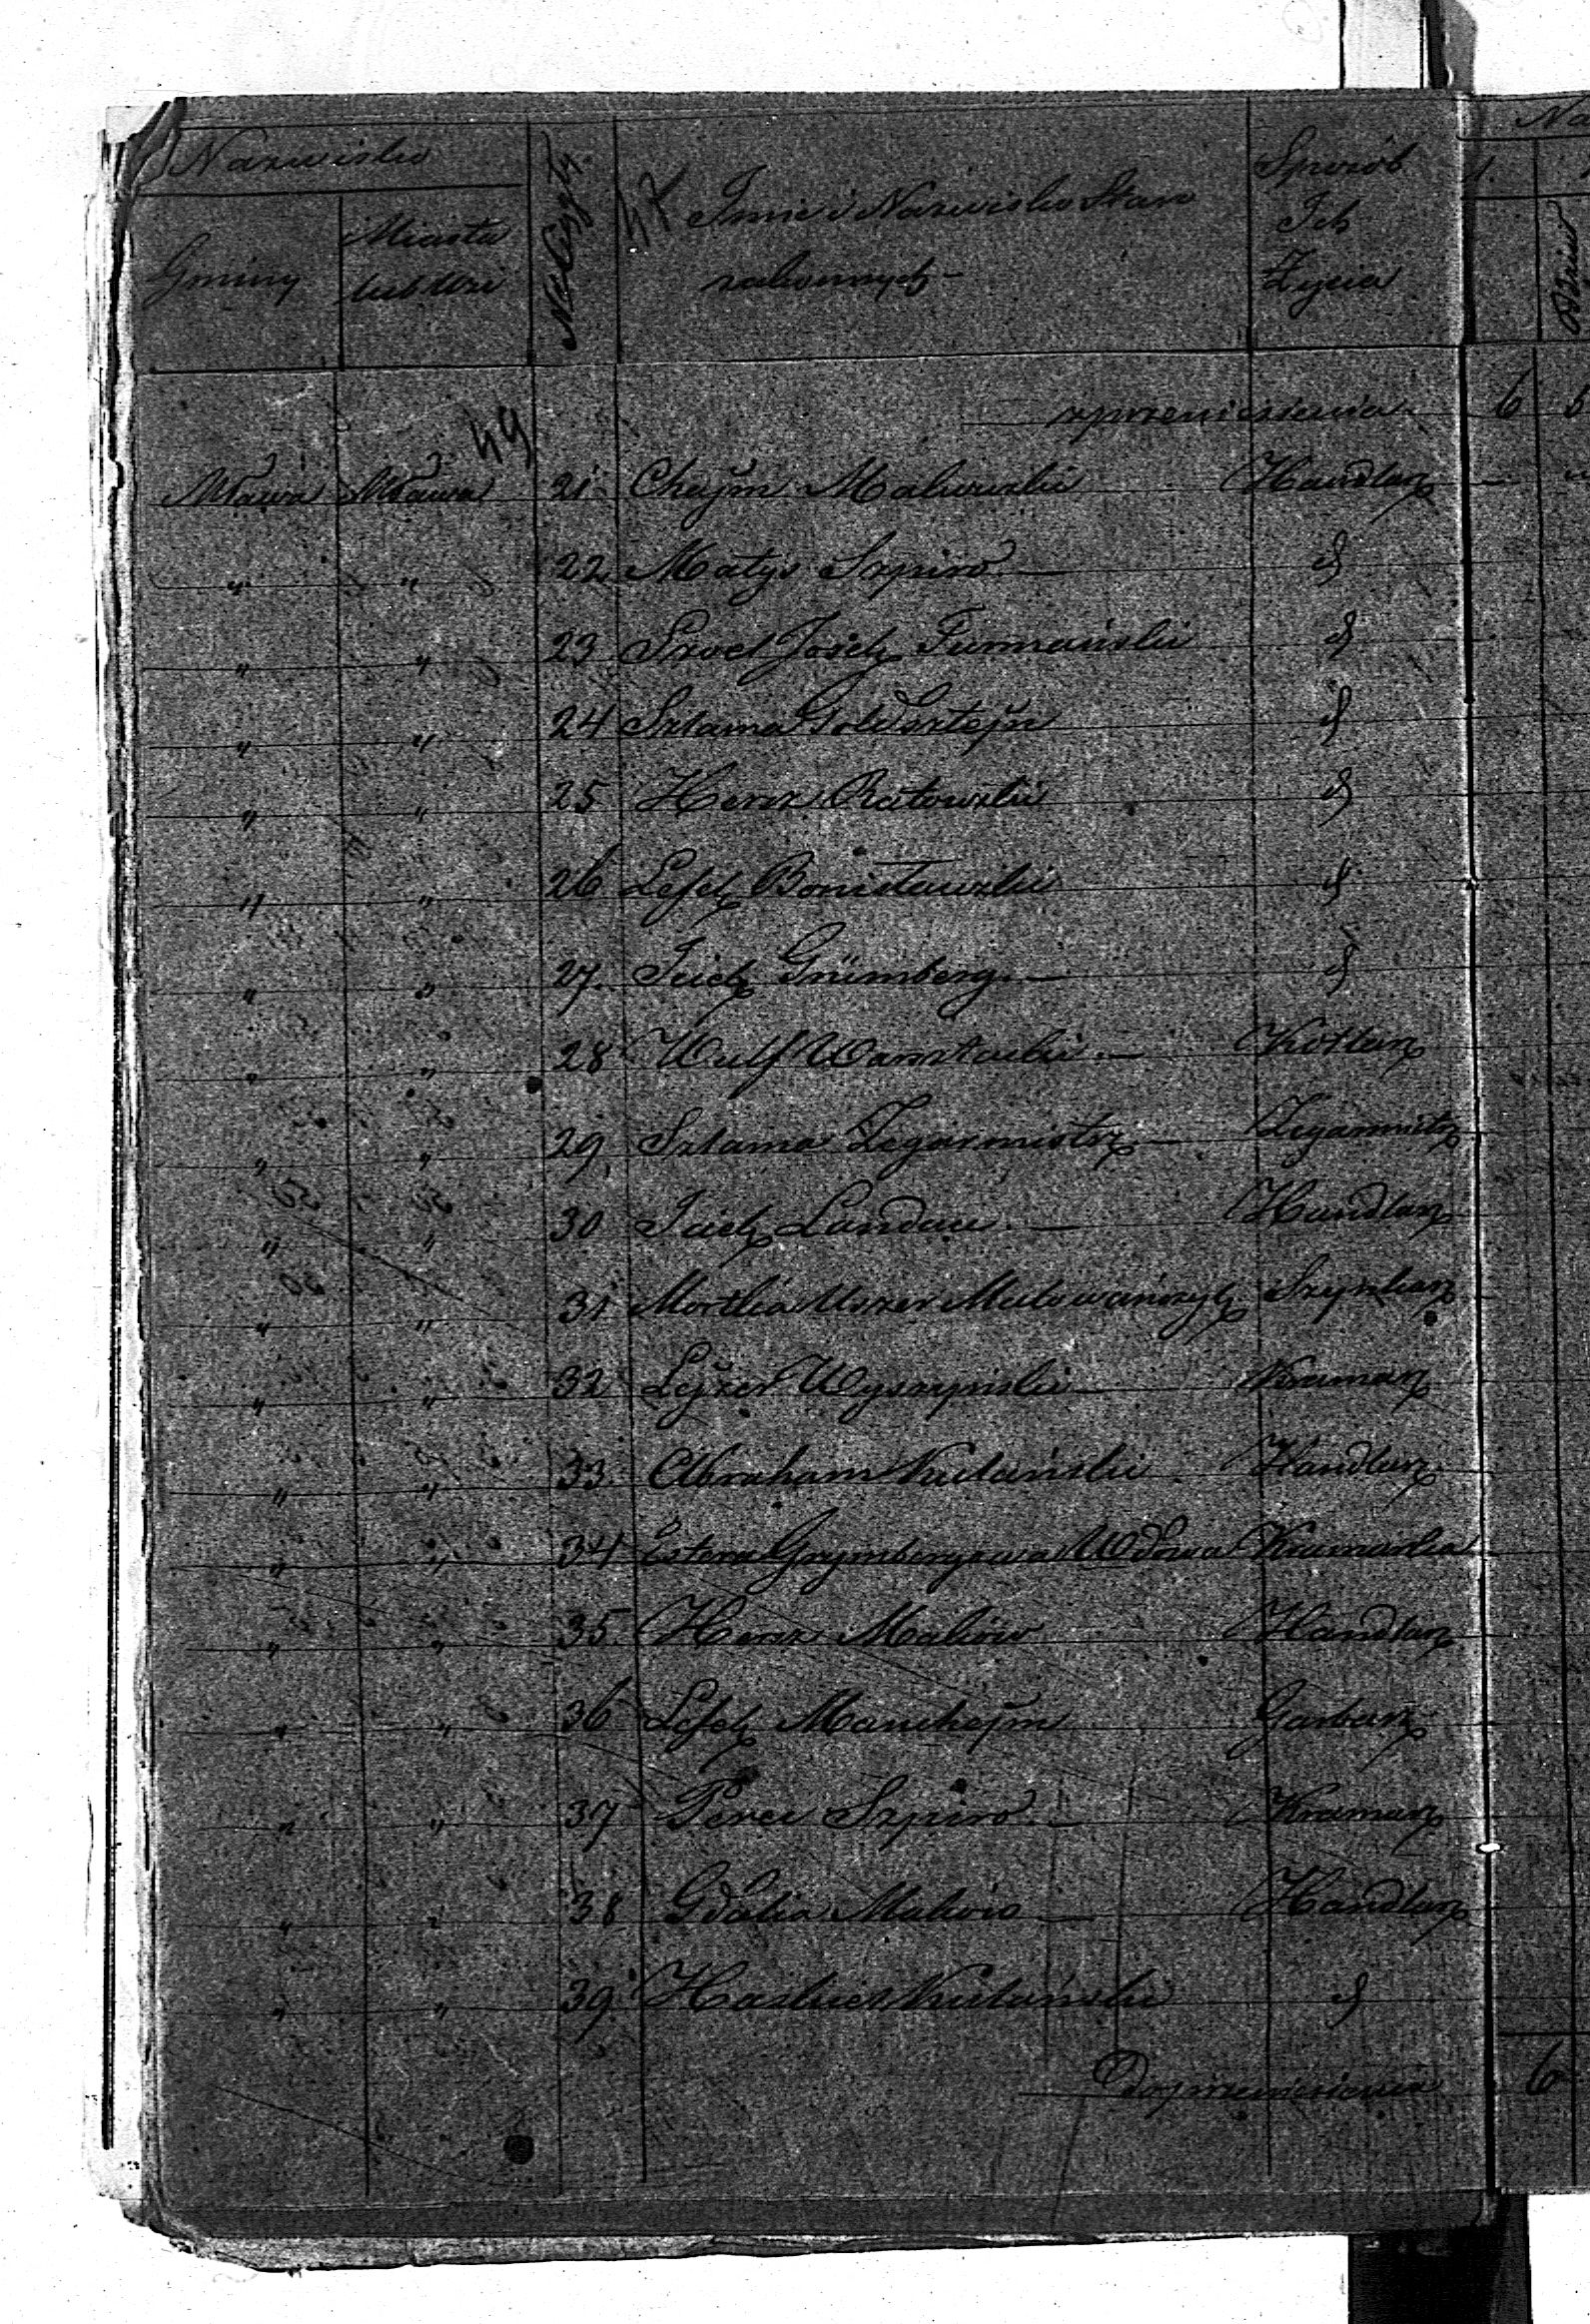 Nazwisko
Gminy
Miasta
lub Wsi
Imie i Nazwisko Stan
zakonnych
Sposób
Ich
Życia
z przeniesienia 6
49
Mława Mława 21 Chaÿm Makowski Handlarz
" " 22 Matys Szpiro d
" " 23 Josek Furmański d
" " 24 Szlama Goldsztejn d
" " 25 Hersz Ratowski d
" " 26 Lefek Bonisławski d
" " 27. Icick Grümberg d
" " 28 Wulf Warsztacki Kotlarz
" " 29 Szlama Zegarmistrz Zegarmistrz
" " 30 Icick Landau Handlarz
" " 31 Mortka Uszer Szynkarz
" " 32 Lejzer Wyszyński Kramarz
" " 33 Abraham Kutański Handlarz
" " 34 Estera Grynbergowa Wdowa Kramarka
" " 35 Hersz Maków Handlarz
" " 36 Lefek Manchejm Garbarz
" " 37 Perec Szpiro Kramarz
" " 38 Gdalia Maków Handlarz
" " 39 Kutański d
Do przeniesienia 6